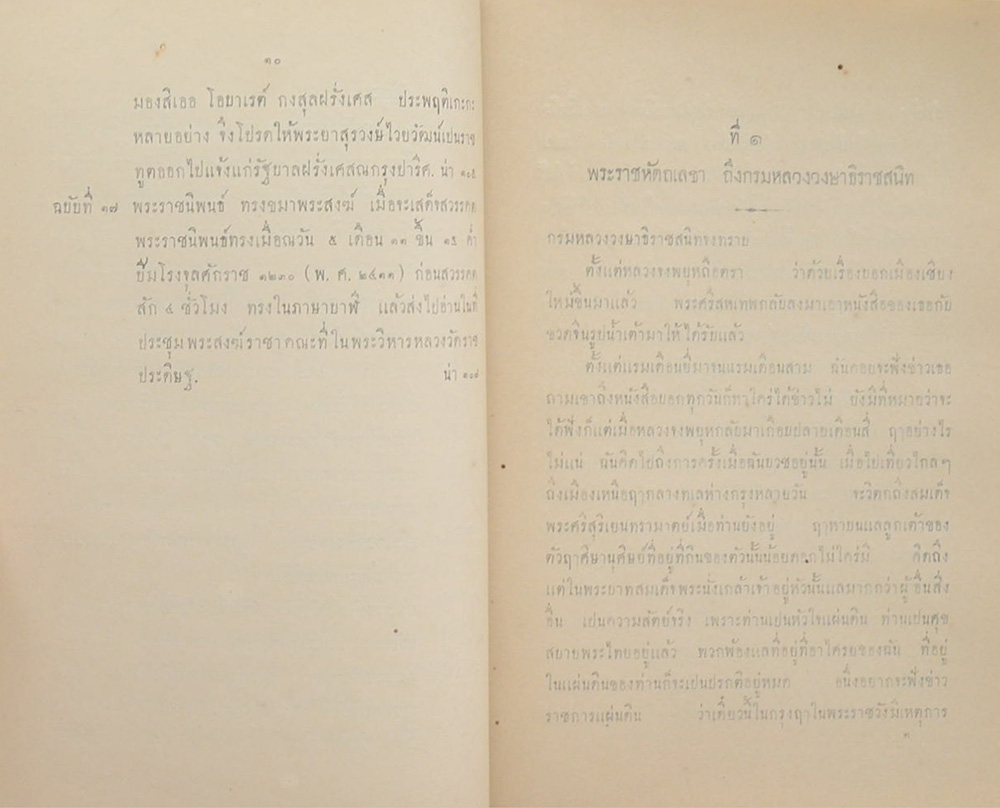 ๑๐
มองสิเออ โอบาเรต์ กงสุลฝรั่งเศส ประพฤติเกะกะ
หลายอย่าง จึงโปรดให้พระยาสุรวงษ์ไวยวัฒน์เปนราช
ทูตออกไปแจ้งแก่รัฐบาลฝรั่งเศสณกรุงปาริศ. น่า ๑๐๕
ฉบับที่ ๑๗ พระราชนิพนธ์ ทรงขมาพระสงฆ์ เมื่อจะเสด็จสวรรคต
พระราชนิพนธ์ทรงเมื่อณวัน ๕ เดือน ๑๑ ขึ้น ๑๕ ค่ำ
ปีมโรงจุลศักราช ๑๒๓๐ (พ. ศ. ๒๔๑๑) ก่อนสวรรคต
สัก ๔ ชั่วโมง ทรงในภาษาบาฬี แล้วส่งไปอ่านในที่
ประชุมพระสงฆ์ราชาคณะที่ในพระวิหารหลวงวัดราช
ประดิษฐ. น่า ๑๐๗
ที่ ๑
พระราชหัตถเลขา ถึงกรมหลวงวงษาธิราชสนิท
กรมหลวงวงษาธิราชสนิทจงทราบ
ตั้งแต่หลวงจงพยุหถือตรา ว่าด้วยเรื่องบอกเมืองเชียง
ใหม่ขึ้นมาแล้ว พระศรีสหเทพกลับลงมาเอาหนังสือของเธอกับ
ขวดจีนรูปน้ำเต้ามาให้ ได้รับแล้ว
ตั้งแต่แรมเดือนยี่มาจนแรมเดือนสาม ฉันคอยจะฟังข่าวเธอ
ถามเขาถึงหนังสือบอกทุกวันก็หาใคร่ได้ข่าวไม่ ยังมีที่หมายว่าจะ
ได้ฟังก็แต่เมื่อหลวงจงพยุหกลับมาเกือบปลายเดือนสี่ ฤๅอย่างไร
ไม่แน่ ฉันคิดไปถึงการครั้งเมื่อฉันบวชอยู่นั้น เมื่อไปเที่ยวไกล ๆ
ถึงเมืองเหนือฤๅกลางทเลห่างกรุงหลายวัน จะวิตกถึงสมเด็จ
พระศรีสุริเยนทรามาตย์เมื่อท่านยังอยู่ ฤๅหาบนแลลูกเต้าของ
ตัวฤๅศิษานุศิษย์ที่อยู่ที่กินของตัวนั้นน้อยดอกไม่ใคร่มี คิดถึง
แต่ในพระบาทสมเด็จพระนั่งเกล้าเจ้าอยู่หัวนั้นแลมากกว่าผู้อื่นสิ่ง
อื่น เปนความสัตย์จริง เพราะท่านเปนหัวใจแผ่นดิน ท่านเปนศุข
สบายพระไทยอยู่แล้ว พวกพ้องแลที่อยู่ที่อาไศรยของฉัน ที่อยู่
ในแผ่นดินของท่านก็จะเปนปรกติอยู่หมด อนึ่งอยากจะฟังข่าว
ราชการแผ่นดิน ว่าเดี๋ยวนี้ในกรุงฤๅในพระราชวังมีเหตุการ